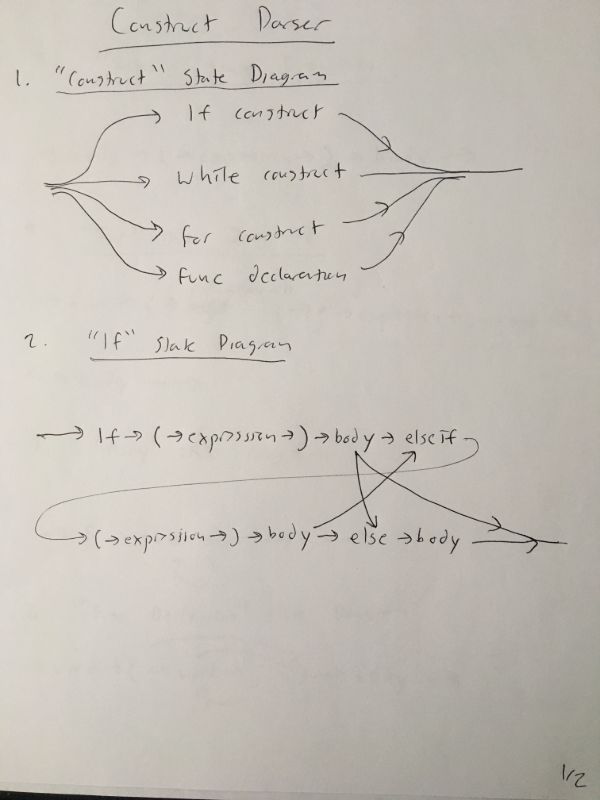 Construct Parser
1. "Construct" State Diagram
If construct
While construct
For construct
Func declaration
2. "If" State Diagram
→ If → ( → expression → ) → body → elseif
→ ( → expression → ) → body → else → body
1/2